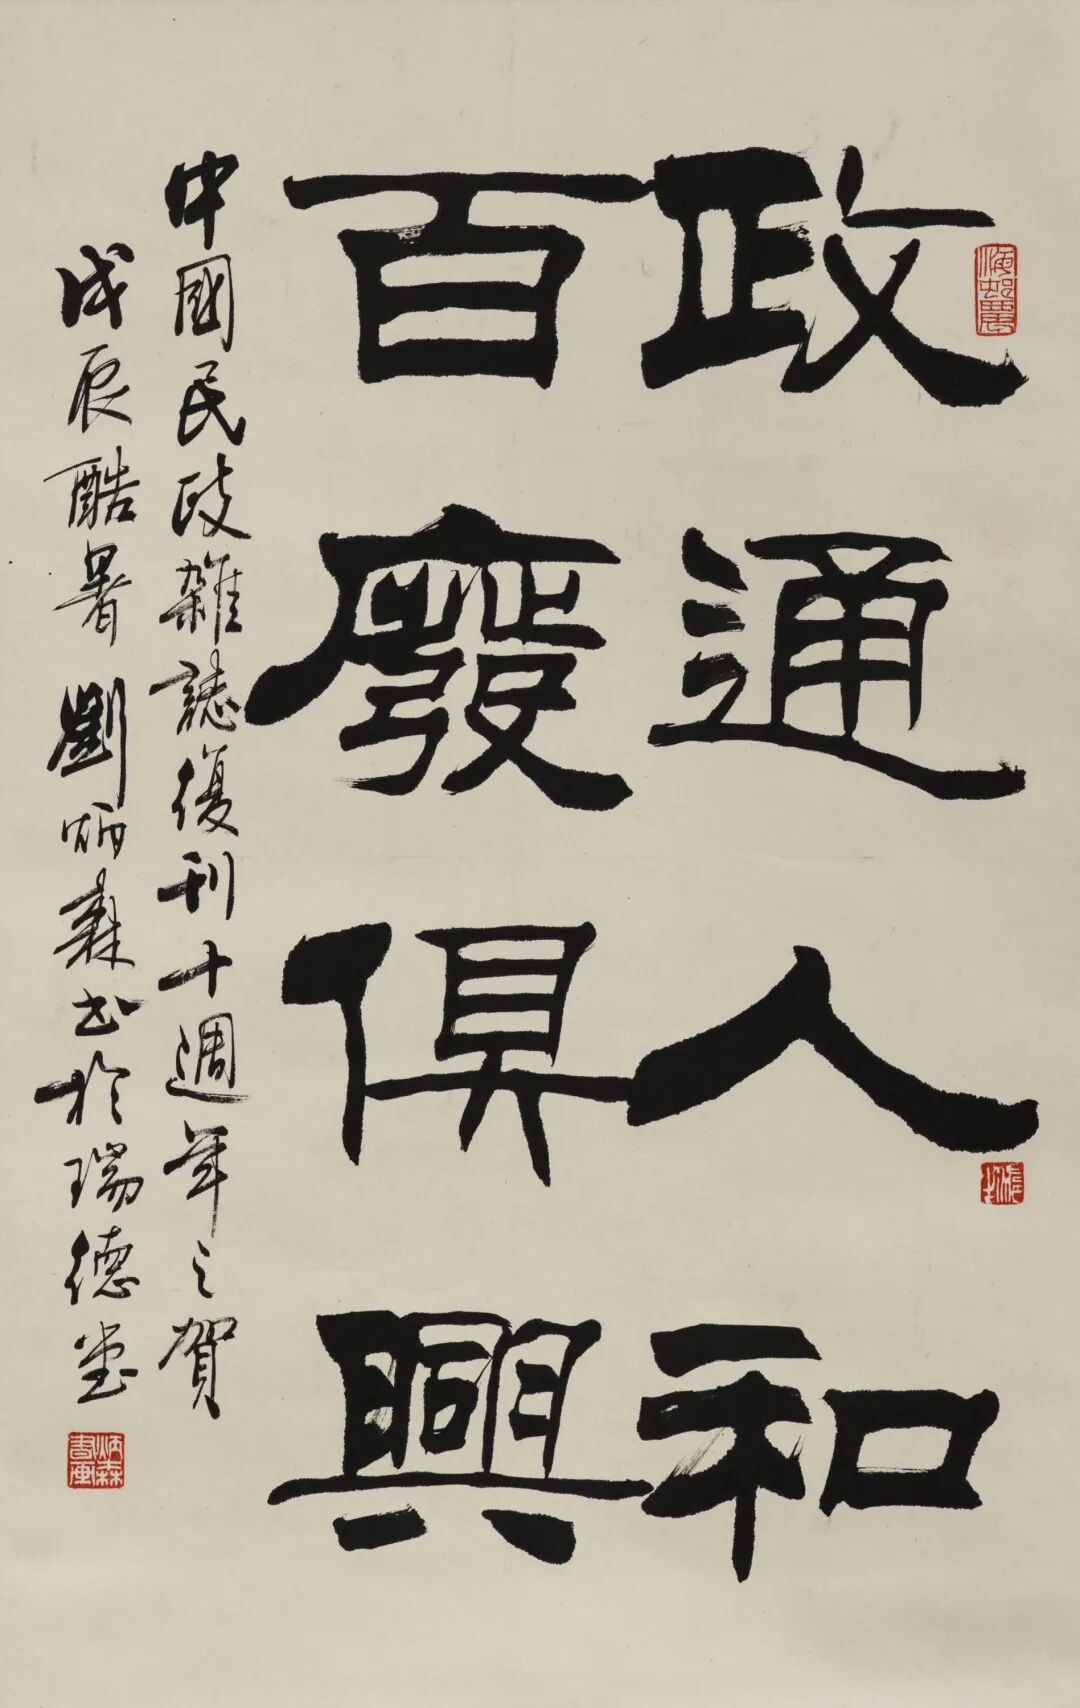 政通人和
百廢俱興
中國民政雜誌復刊十週年之賀
戊辰酷暑劉炳森書於瑞德堂
炳森書画